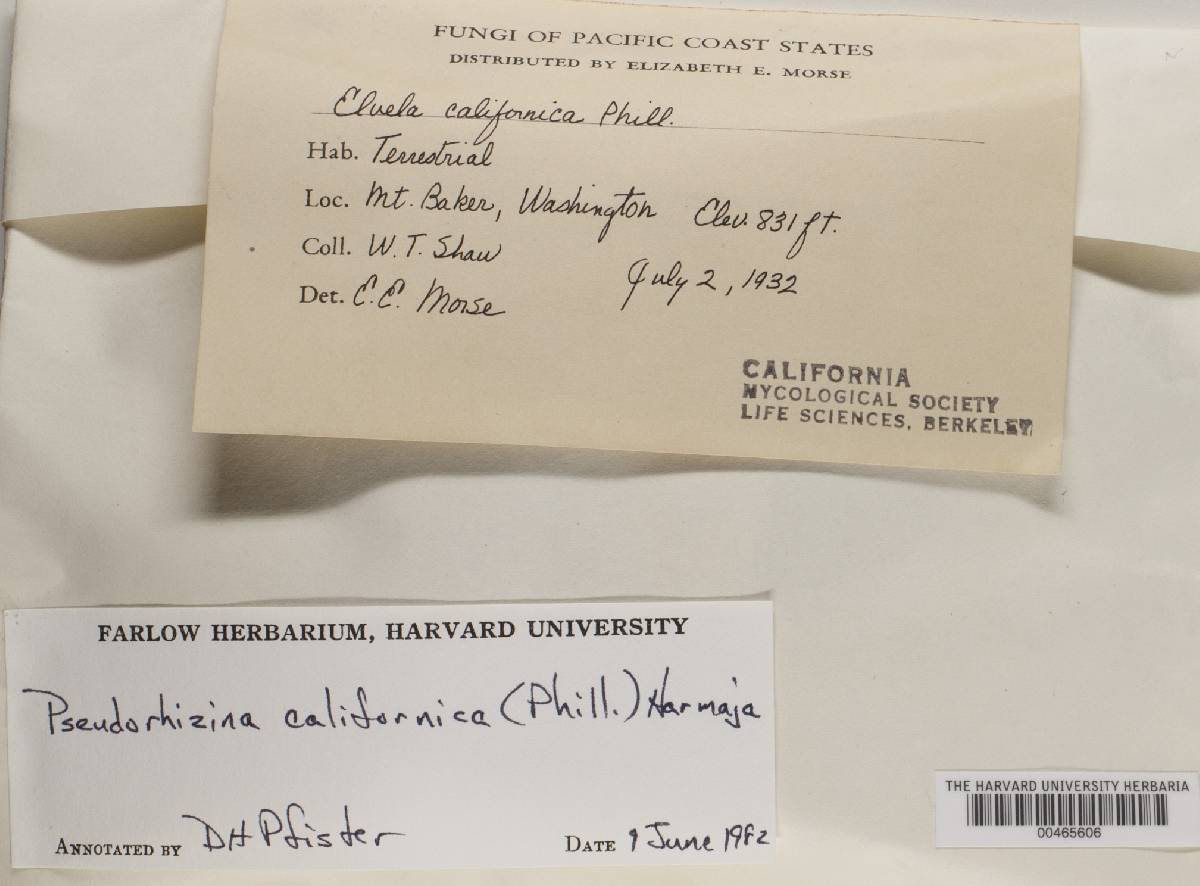 FUNGI OF PACIFIC COAST STATES
DISTRIBUTED BY ELIZABETH E. MORSE
Elvela californica Phill.
Hab. Terrestrial
Loc. Mt. Baker, Washington Elev. 831 ft.
Coll. W. T. Shaw
July 2, 1932
Det. E. E. Morse
CALIFORNIA
MYCOLOGICAL SOCIETY
LIFE SCIENCES, BERKELEY
FARLOW HERBARIUM, HARVARD UNIVERSITY
Pseudorhizina californica (Phill.) Harmaja
ANNOTATED BY DH Pfister DATE 9 June 1982
THE HARVARD UNIVERSITY HERBARIA
00465606